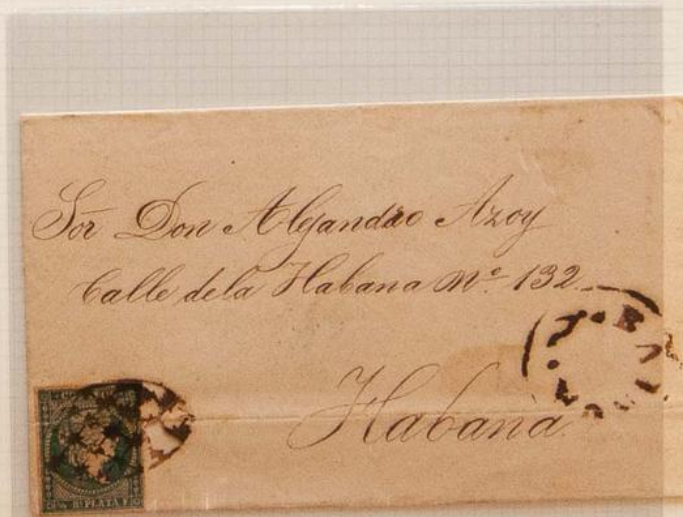 Sor Don Alejandro Azoy
Calle de la Habana No. 132
Habana
PLATA F